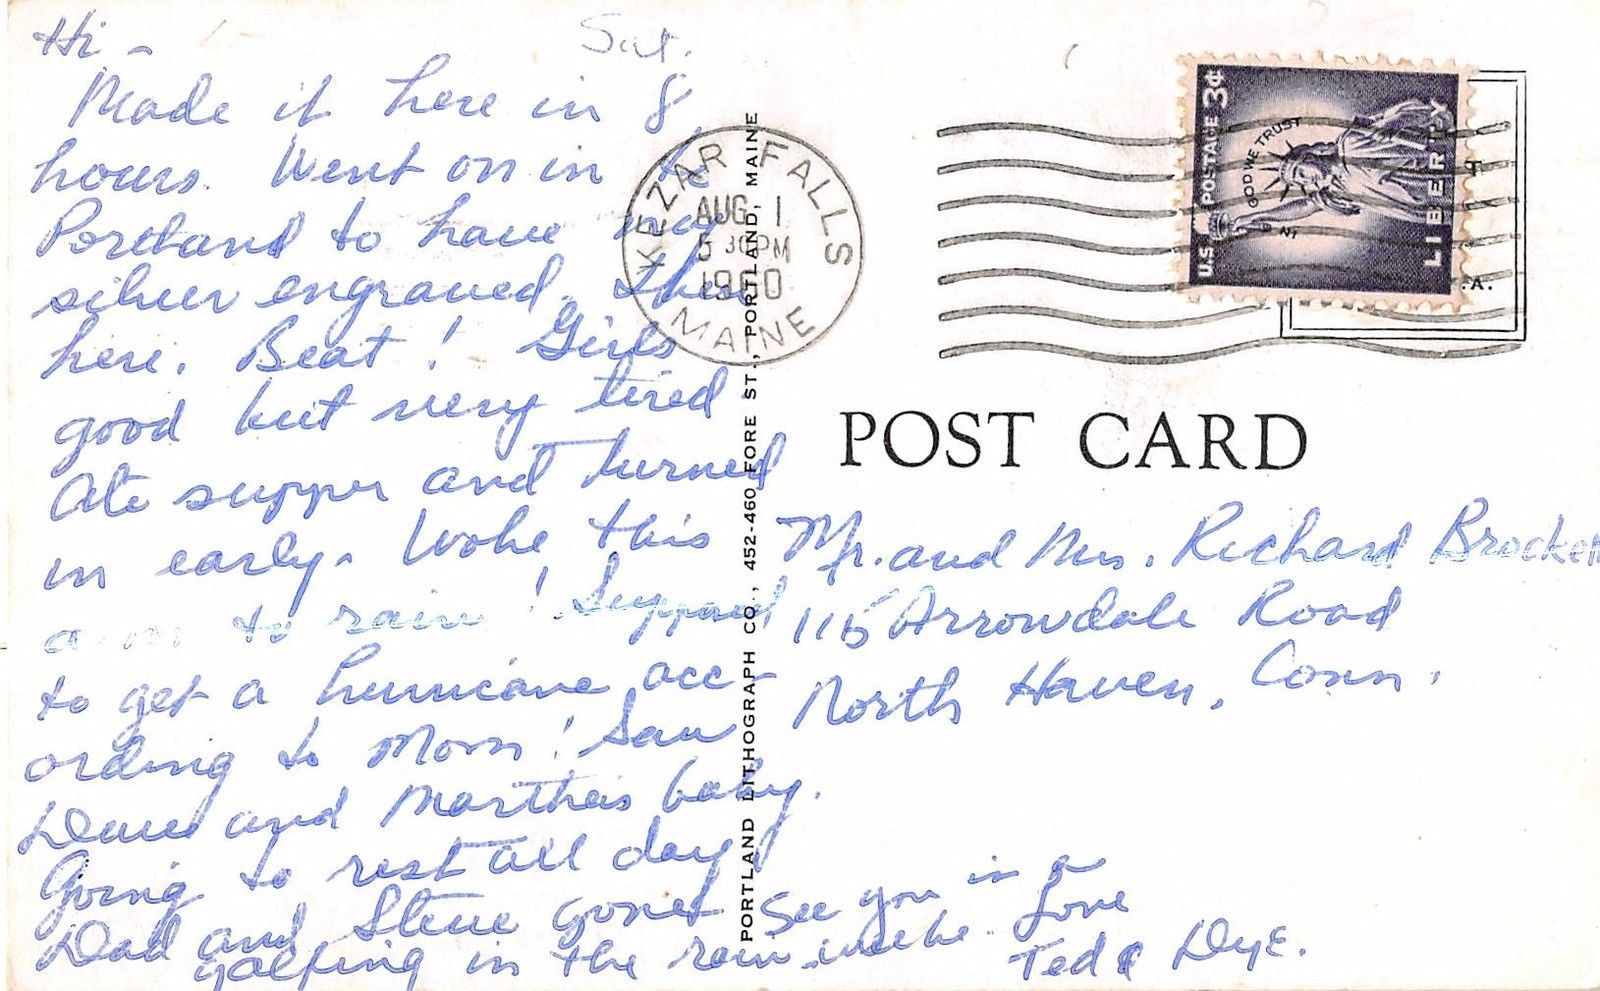 Hi - Sat.
Made it here in 8
hours. Went on in to
Portland to have my
silver engraved, then
here. Beat! Girls
good but very tired.
Ate supper and turned
in early. Woke this
a.m to rain! Supposed
to get a hurricane acc-
ording to Mom! Saw
Dave and Martha's baby.
Going to rest all day
Dad and Steve gone
golfing in the rain.
See you in a
week. Love
Ted & Dye.
KEZAR FALLS
AUG 1
5 30 PM
1960
MAINE
U.S. POSTAGE 3¢
IN GOD WE TRUST
LIBERTY
POST CARD
Mr. and Mrs. Richard Brockett
115 Arrowdale Road
North Haven, Conn.
PORTLAND LITHOGRAPH CO., 452-460 FORE ST., PORTLAND, MAINE